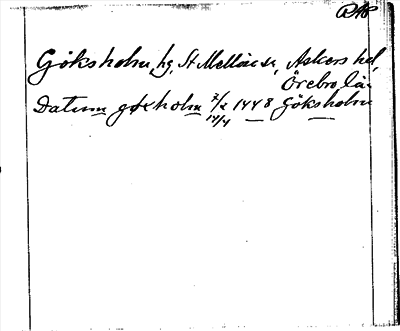 RAP
Göksholm, hg, St Mellösa sn, Askers hd,
Örebro län
Datum gøxholm 7/2 1448 Göksholm
14/4